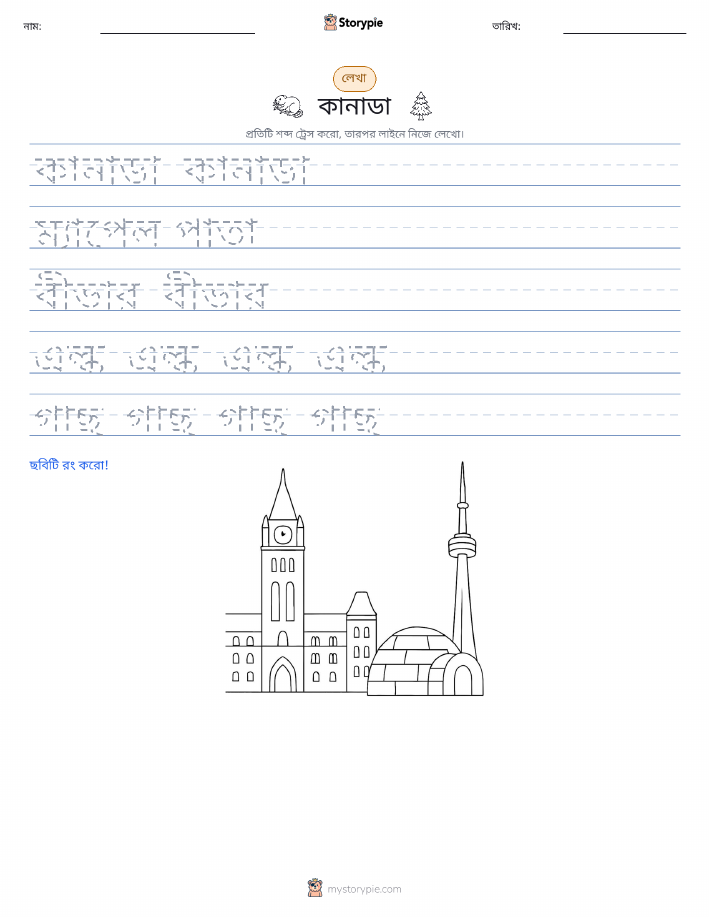 নাম:
Storypie
তারিখ:
লেখা
কানাডা
প্রতিটি শব্দ ট্রেস করো, তারপর লাইনে নিজে লেখো।
কানাডা কানাডা
ম্যাপেল পাতা
বীভার বীভার
এল্ক এল্ক এল্ক এল্ক
গাছ গাছ গাছ গাছ
ছবিটি রং করো!
mystorypie.com